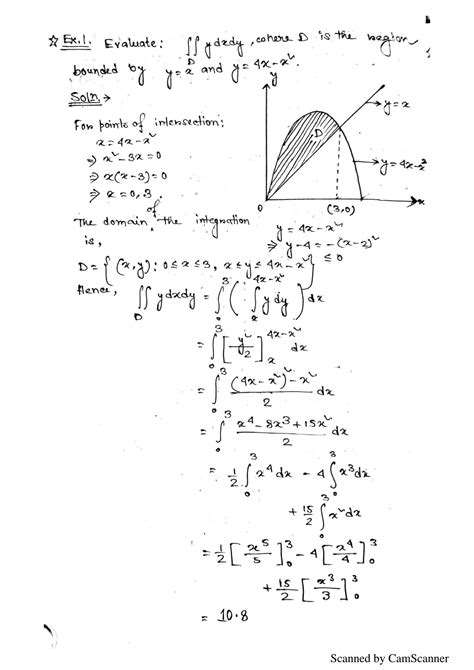 ☆ Ex.1. Evaluate: ∬_D y dx dy, where D is the region
bounded by y = x and y = 4x - x².
Soln. →
For points of intersection:
x = 4x - x²
⇒ x² - 3x = 0
⇒ x(x-3) = 0
⇒ x = 0, 3.
y
→ y = x
D
→ y = 4x - x²
0
(3,0)
x
The domain of the integration
is,
y = 4x - x²
⇒ y - 4 = -(x-2)²
≤ 0
D = {(x,y): 0 ≤ x ≤ 3, x ≤ y ≤ 4x - x²}
Hence, ∬_D y dx dy = ∫_0^3 ( ∫_x^{4x-x²} y dy ) dx
= ∫_0^3 [y²/2]_x^{4x-x²} dx
= ∫_0^3 ((4x - x²)² - x²)/2 dx
= ∫_0^3 (x⁴ - 8x³ + 15x²)/2 dx
= 1/2 ∫_0^3 x⁴ dx - 4 ∫_0^3 x³ dx
+ 15/2 ∫_0^3 x² dx
= 1/2 [x⁵/5]_0^3 - 4 [x⁴/4]_0^3
+ 15/2 [x³/3]_0^3
= 10.8
Scanned by CamScanner